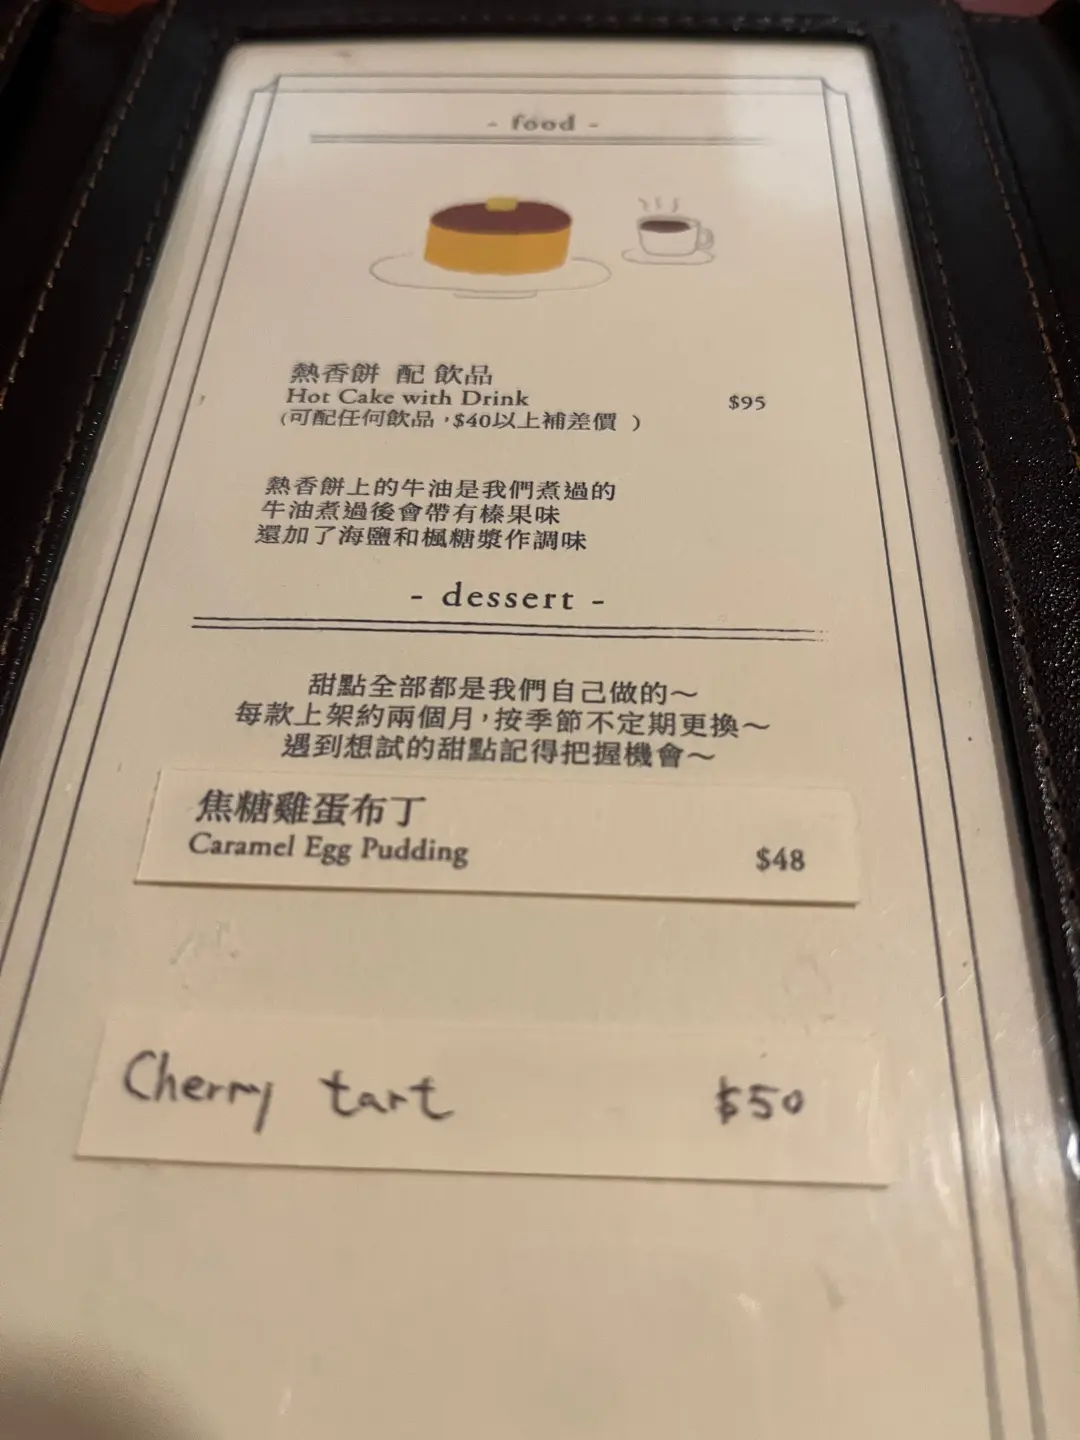 - food -
熱香餅 配 飲品
Hot Cake with Drink
$95
(可配任何飲品，$40以上補差價 )
熱香餅上的牛油是我們煮過的
牛油煮過後會帶有榛果味
還加了海鹽和楓糖漿作調味
- dessert -
甜點全部都是我們自己做的～
每款上架約兩個月，按季節不定期更換～
遇到想試的甜點記得把握機會～
焦糖雞蛋布丁
Caramel Egg Pudding
$48
Cherry tart $50